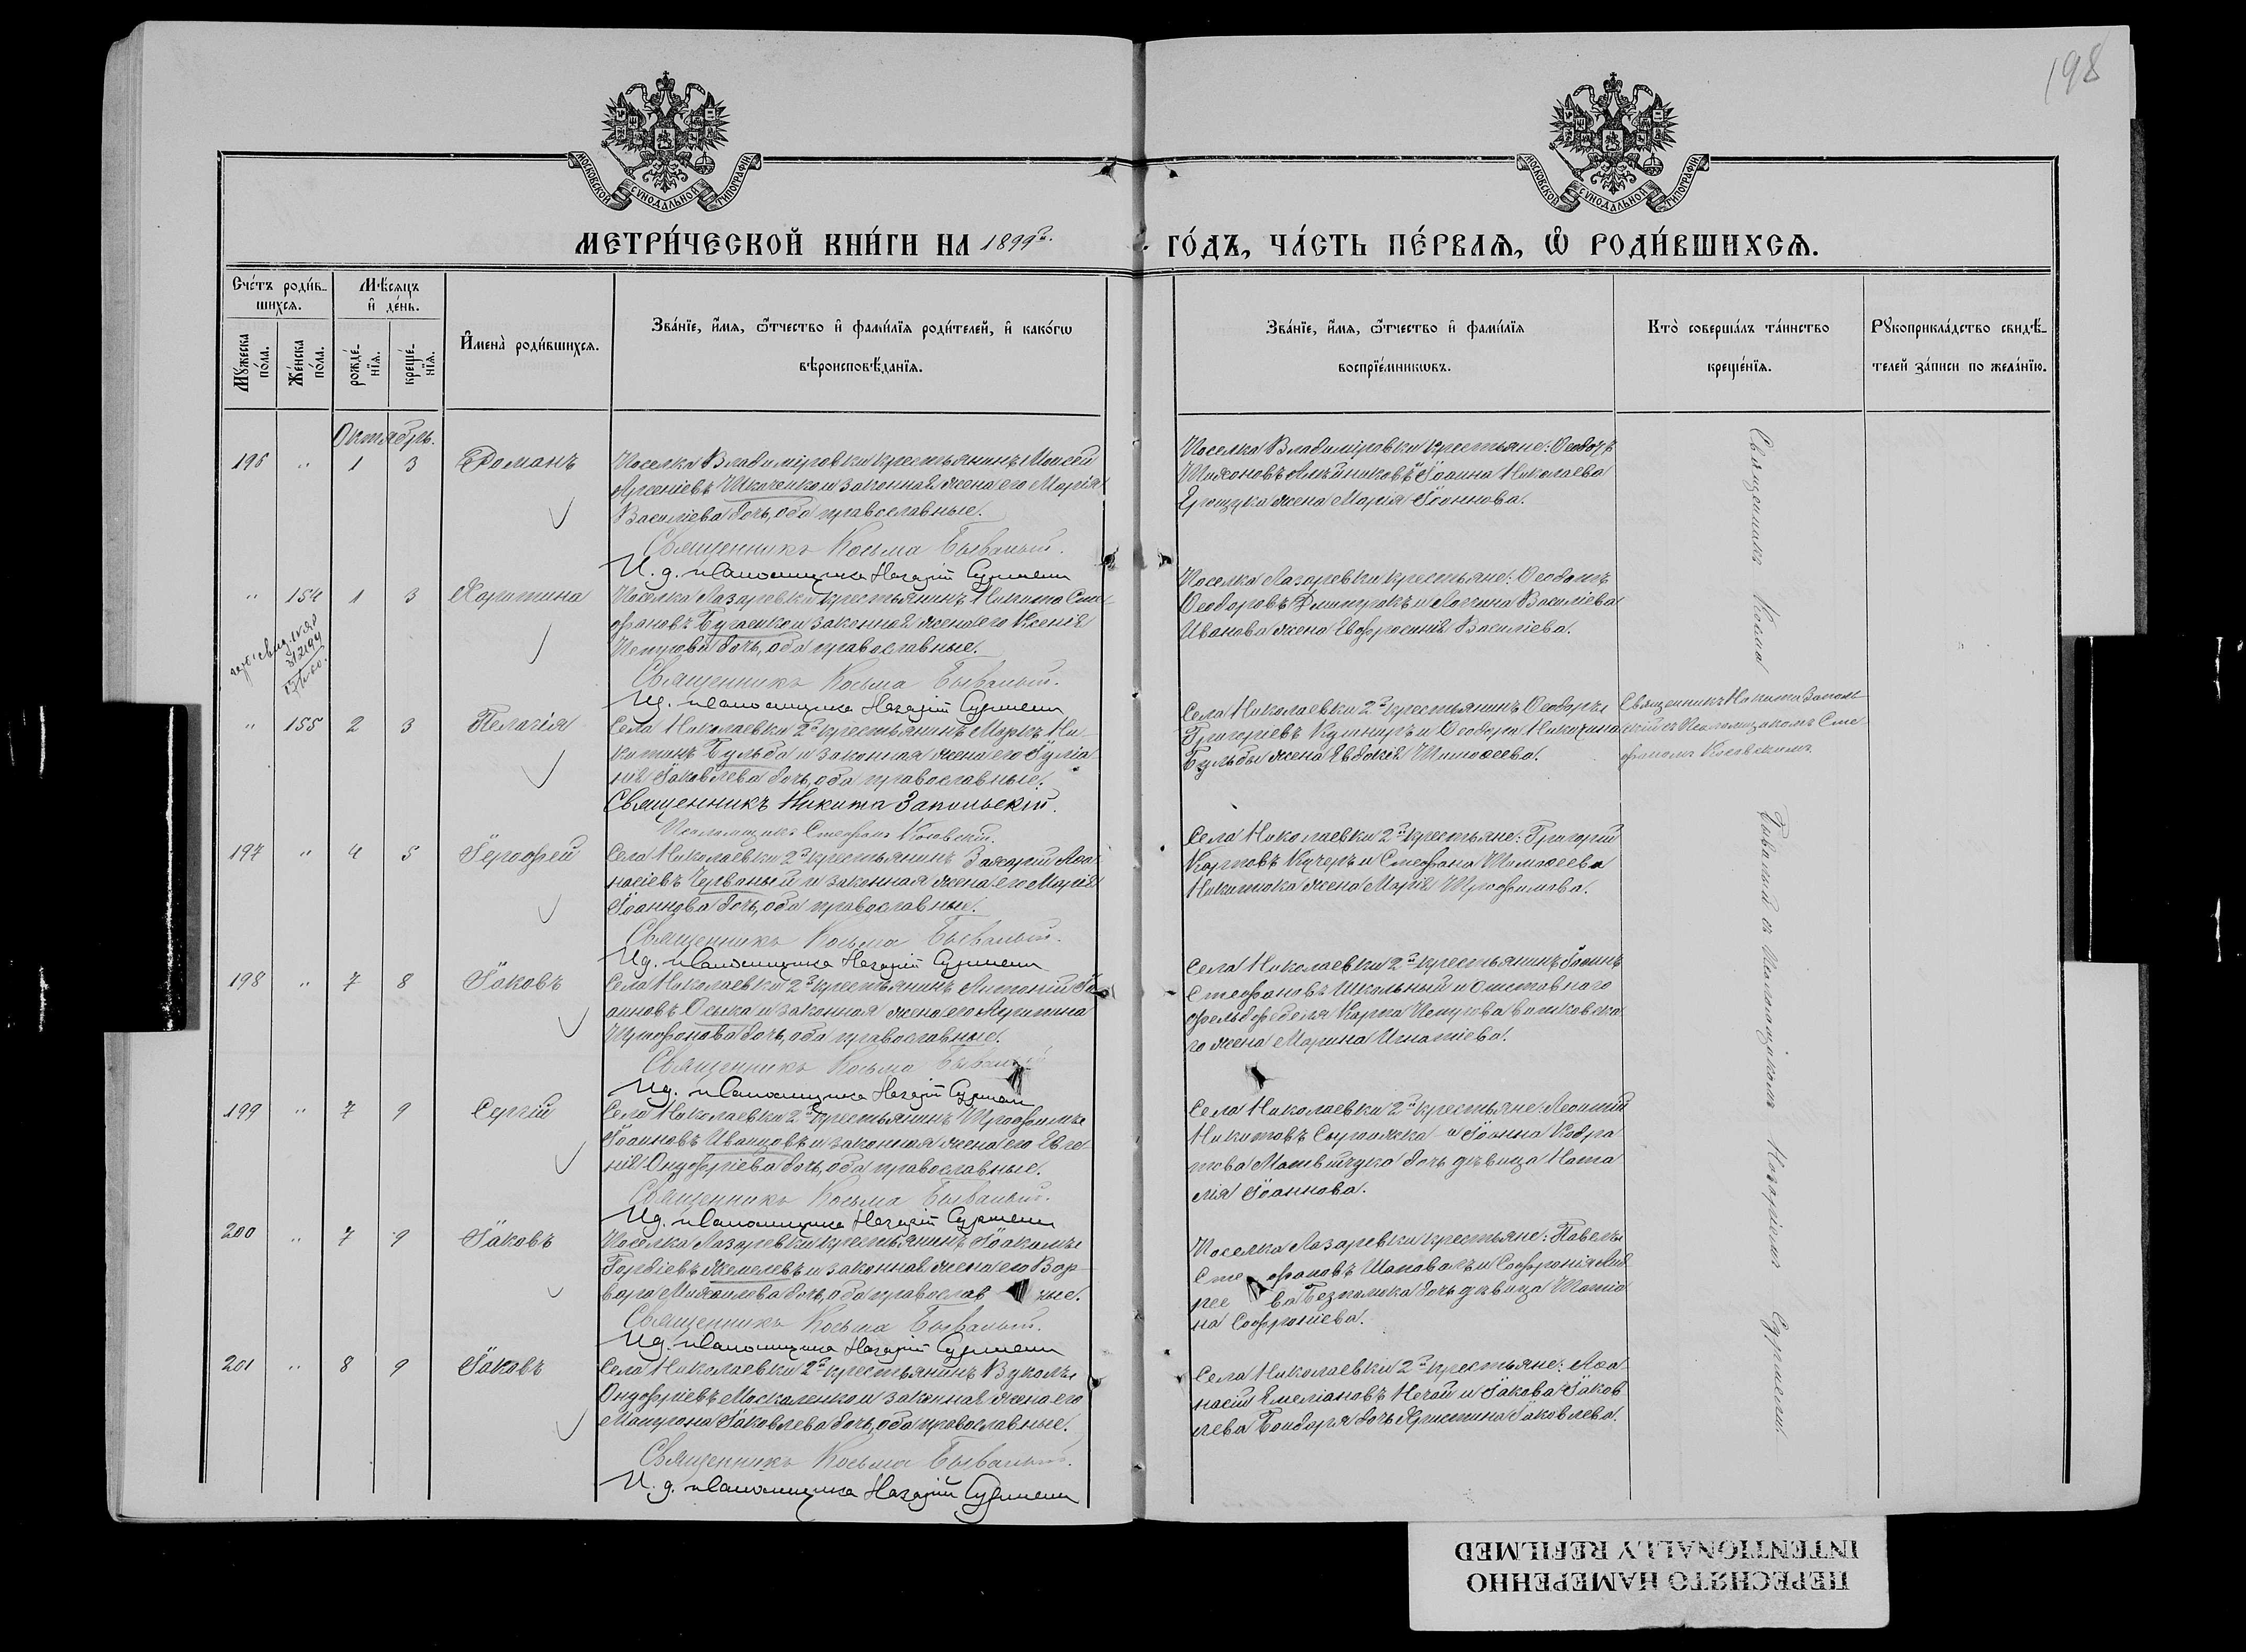 198
МОСКОВСКОЙ СѴНОДАЛЬНОЙ ТИПОГРАФІИ
МОСКОВСКОЙ СѴНОДАЛЬНОЙ ТИПОГРАФІИ
МЕТРИ́ЧЕСКОЙ КНИ́ГИ НА 1899й.
ГО́ДЪ, ЧА́СТЬ ПЕ́РВАѦ, Ѡ РОДИ́ВШИХСѦ.
Сче́тъ роди́в-
шихсѧ.
Мѣ́сѧцъ
и҆ де́нь.
Мꙋ́жеска по́ла.
Же́нска по́ла.
рожде́-нїѧ.
креще́-нїѧ.
И҆мена̀ роди́вшихсѧ.
Зва́нїе, и҆́мѧ, ѻ҆́тчество и҆ фамı́лїѧ роди́телей, и҆ како́гѡ
вѣроисповѣ́данїѧ.
Зва́нїе, и҆́мѧ, ѻ҆́тчество и҆ фамı́лїѧ
воспрїе́мникѡвъ.
Кто̀ соверша́лъ та́инство
креще́нїѧ.
Рꙋкоприкла́дство свидѣ́-
телей за́писи по жела́нїю.
Октябрь.
196 " 1 3 Романъ
Поселка Владиміровки крестьянинъ Моисей
Арсеніевъ Шкаченко и законная жена его Марія
Василіева дочь, оба православные.
Священникъ Косьма Бывалый.
И. д. псаломщика Назарій Сурмели
Поселка Владиміровки крестьяне: Ѳеодоръ
Іоанна Николаева
жена Марія Іоаннова.
" 154 1 3 Харитина
Поселка Лазаревки крестьянинъ Никита Сте-
фановъ Бугаенко и законная жена его Ксенія
дочь, оба православные.
Священникъ Косьма Бывалый.
Ид. псаломщика Назарій Сурмели
Поселка Лазаревки крестьяне:
Ѳеодоровъ Дмитракъ и Василіева
Иванова жена Евфросинія Василіева.
" 155 2 3 Пелагія
Села Николаевки 2й крестьянинъ Маркъ Ни-
китинъ Бульба и законная жена его Іуліа-
нія Іаковлева дочь, оба православные.
Священникъ Никита Запольскій.
Псаломщикъ Стефанъ Косовскій.
Села Николаевки 2й крестьянинъ Ѳеодоръ
Григоріевъ Кушниръ и Ѳеодора Никитина
Бульбы жена Евдокія Тимоѳеева.
Священникъ Никита Заполь-
скій съ Псаломщикомъ Сте-
фаномъ Косовскимъ
197 " 4 5 Іероѳей
Села Николаевки 2й крестьянинъ Захарій Аѳа-
насіевъ Червоный и законная жена его Марія
Іоаннова дочь, оба православные.
Священникъ Косьма Бывалый.
Ид. псаломщика Назарій Сурмели
Села Николаевки 2й крестьяне: Григорій
Карповъ Кучеръ и Стефана Тимоѳеева
Никитюка жена Марія Трофимова.
198 " 7 8 Іаковъ
Села Николаевки 2й крестьянинъ Антоній Іо-
анновъ Осыка и законная жена его
дочь, оба православные.
Священникъ Косьма Бывалый
Ид. псаломщика Назарій Сурмели
Села Николаевки 2й крестьянинъ Іоаннъ
Стефановъ Школьный и отставного
фельдфебеля Карпа
го жена Марина Игнатіева.
199 " 7 9 Сергій
Села Николаевки 2й крестьянинъ Трофимъ
Іоанновъ Иванцовъ и законная жена его Евге-
нія Онуфріева дочь, оба православные.
Священникъ Косьма Бывалый.
Ид. псаломщика Назарій Сурмели
Села Николаевки 2й крестьяне: Леонтій
Никитовъ и Іоанна Кодра-
това Матвійчука дочь дѣвица Ната-
лія Іоаннова.
200 " 7 9 Іаковъ
Поселка Лазаревки крестьянинъ Іоакимъ
Гордіевъ Жемелевъ и законная жена его Вар-
вара Михаилова дочь, оба православные.
Священникъ Косьма Бывалый.
Ид. псаломщика Назарій Сурмели
Поселка Лазаревки крестьяне: Павелъ
Стефановъ Шаповалъ и Софронія Анд-
реева дочь дѣвица Татіа-
на Софроніева.
201 " 8 9 Іаковъ
Села Николаевки 2й крестьянинъ Вуколъ
Онуфріевъ Москаленко и законная жена его
Матрона Іаковлева дочь, оба православные.
Священникъ Косьма Бывалый.
И. д. псаломщика Назарій Сурмели
Села Николаевки 2й крестьяне: Аѳа-
насій Емеліановъ Нечай и Іакова Іаков-
лева Бондаря дочь Христина Іаковлева.
Священникъ Косьма Бывалый съ Псаломщикомъ Назаріемъ Сурмели
ПЕРЕСНЯТО НАМЕРЕННО
INTENTIONALLY REFILMED